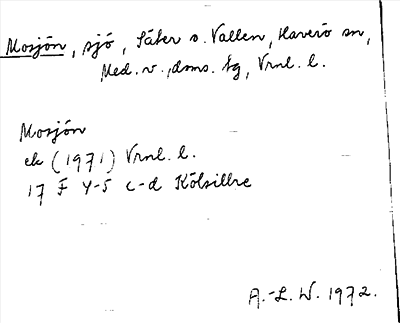 Mosjön, sjö, Säter o. Vallen, Haverö sn,
Med. v., dsms. tg, Vrnl. l.
Mosjön
ek (1971) Vrnl. l.
17 F 4-5 c-d Kölsillre
A.-L. W. 1972.